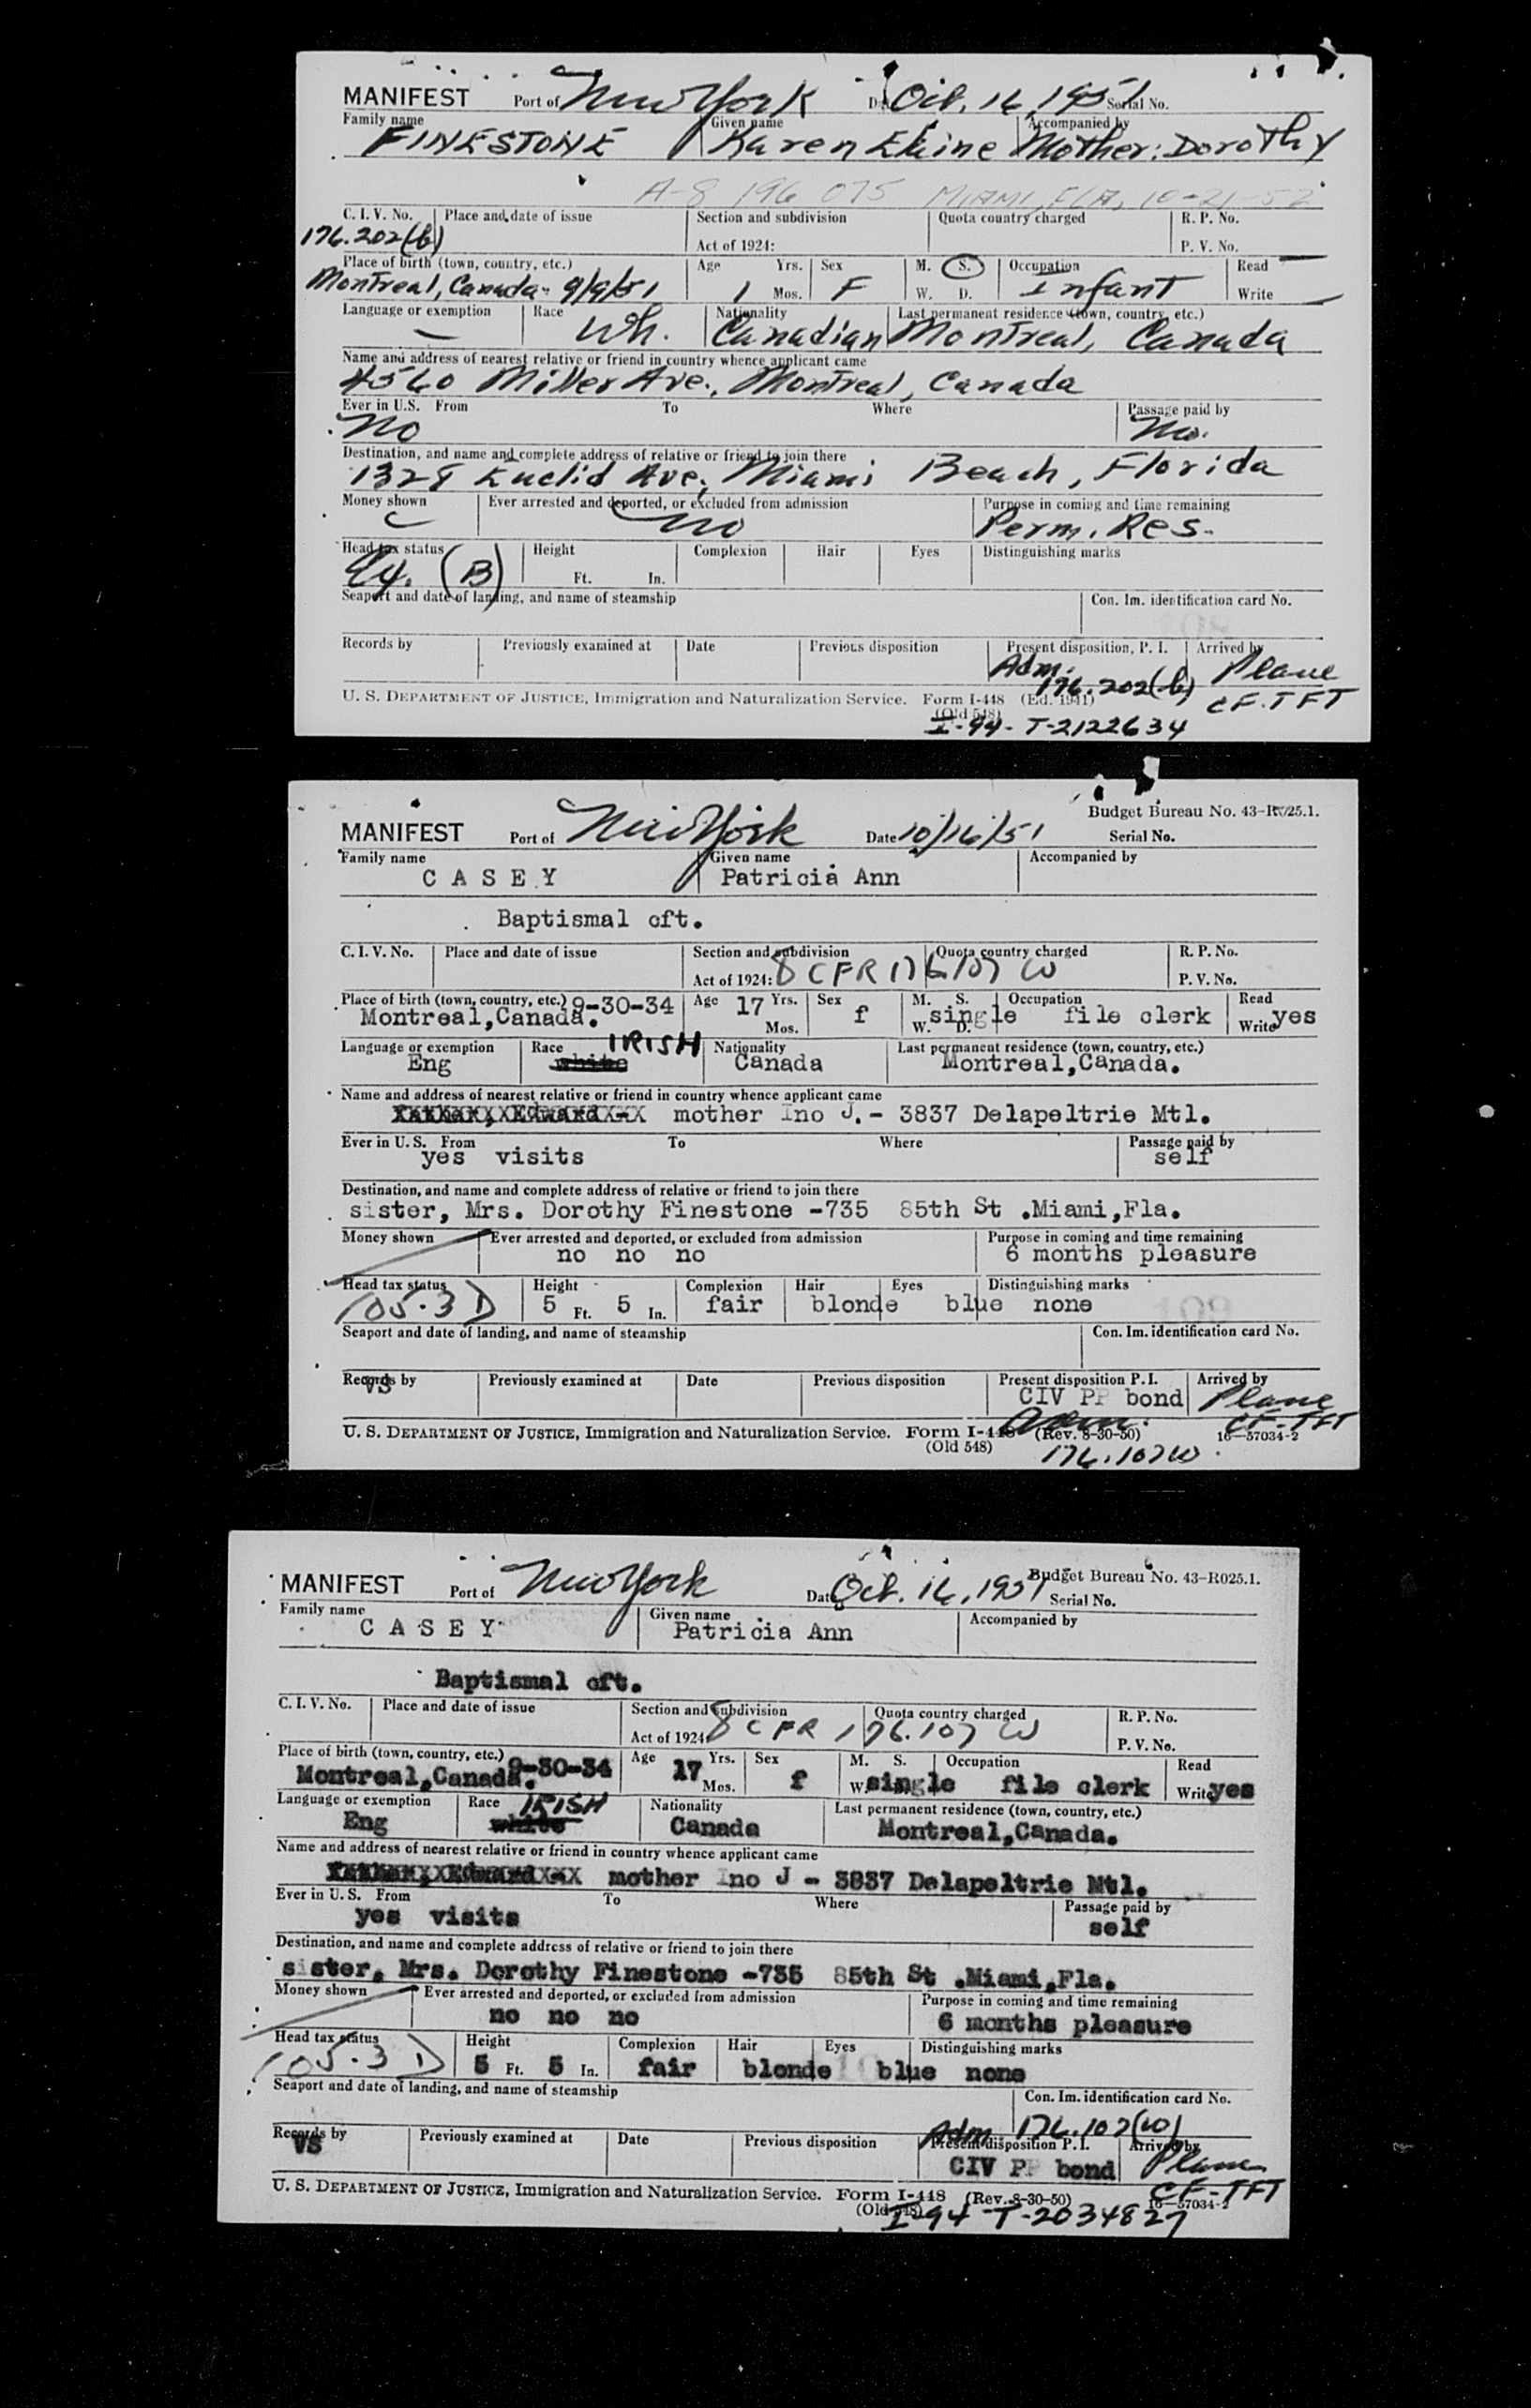 MANIFEST Port of New York Date Oct. 16, 1951 Serial No.
Family name Given name Accompanied by
FINESTONE Karen Elaine Mother: Dorothy
A-8 196 075 MIAMI, FLA, 10-21-52
C. I. V. No. Place and date of issue Section and subdivision Quota country charged R. P. No.
176.202(b) Act of 1924: P. V. No.
Place of birth (town, country, etc.) Age Yrs. Sex M. S. Occupation Read
Montreal, Canada - 9/9/51 1 Mos. F W. D. Infant Write —
Language or exemption Race Nationality Last permanent residence (town, country, etc.)
— Wh. Canadian Montreal, Canada
Name and address of nearest relative or friend in country whence applicant came
4560 Miller Ave., Montreal, Canada
Ever in U.S. From To Where Passage paid by
No Mo.
Destination, and name and complete address of relative or friend to join there
1328 Euclid Ave., Miami Beach, Florida
Money shown Ever arrested and deported, or excluded from admission Purpose in coming and time remaining
No Perm. Res.
Head tax status Height Complexion Hair Eyes Distinguishing marks
(B) Ft. In.
Seaport and date of landing, and name of steamship Con. Im. identification card No.
Records by Previously examined at Date Previous disposition Present disposition, P. I. Arrived by
Adm. Plane
176.202(b) CF-TFT
U. S. DEPARTMENT OF JUSTICE, Immigration and Naturalization Service. Form I-448 (Ed. 1941)
(Old 548)
I-94- T-2122634
Budget Bureau No. 43-R025.1.
MANIFEST Port of New York Date 10/16/51 Serial No.
Family name Given name Accompanied by
C A S E Y Patricia Ann
Baptismal cft.
C. I. V. No. Place and date of issue Section and subdivision Quota country charged R. P. No.
Act of 1924: 8 CFR 176.107 W P. V. No.
Place of birth (town, country, etc.) 9-30-34 Age 17 Yrs. Sex M. S. Occupation Read
Montreal,Canada. Mos. f W. D. single file clerk Write yes
Language or exemption Race IRISH Nationality Last permanent residence (town, country, etc.)
Eng white Canada Montreal,Canada.
Name and address of nearest relative or friend in country whence applicant came
mother Ino J. - 3837 Delapeltrie Mtl.
Ever in U. S. From To Where Passage paid by
yes visits self
Destination, and name and complete address of relative or friend to join there
sister, Mrs. Dorothy Finestone -735 85th St .Miami,Fla.
Money shown Ever arrested and deported, or excluded from admission Purpose in coming and time remaining
no no no 6 months pleasure
Head tax status Height Complexion Hair Eyes Distinguishing marks
105.3 D 5 Ft. 5 In. fair blonde blue none
109
Seaport and date of landing, and name of steamship Con. Im. identification card No.
Records by Previously examined at Date Previous disposition Present disposition P. I. Arrived by
VS CIV PP bond Plane
Adm. CF-TFT
U. S. DEPARTMENT OF JUSTICE, Immigration and Naturalization Service. Form I-448 (Rev. 8-30-50) 16—57034-2
(Old 548) 176.107W
Budget Bureau No. 43-R025.1.
MANIFEST Port of New York Date Oct. 16, 1951 Serial No.
Family name Given name Accompanied by
C A S E Y Patricia Ann
Baptismal cft.
C. I. V. No. Place and date of issue Section and subdivision Quota country charged R. P. No.
Act of 1924: 8 CFR 176.107 W P. V. No.
Place of birth (town, country, etc.) 9-30-34 Age 17 Yrs. Sex M. S. Occupation Read
Montreal,Canada. Mos. f W. single file clerk Write yes
Language or exemption Race IRISH Nationality Last permanent residence (town, country, etc.)
Eng white Canada Montreal,Canada.
Name and address of nearest relative or friend in country whence applicant came
mother Ino J - 3837 Delapeltrie Mtl.
Ever in U. S. From To Where Passage paid by
yes visits self
Destination, and name and complete address of relative or friend to join there
sister, Mrs. Dorothy Finestone -735 85th St .Miami,Fla.
Money shown Ever arrested and deported, or excluded from admission Purpose in coming and time remaining
no no no 6 months pleasure
Head tax status Height Complexion Hair Eyes Distinguishing marks
105.3 D 5 Ft. 5 In. fair blonde blue none
Seaport and date of landing, and name of steamship Con. Im. identification card No.
Adm 176.107(W)
Records by Previously examined at Date Previous disposition Present disposition P. I. Arrived by
VS CIV PP bond Plane
CF-TFT
U. S. DEPARTMENT OF JUSTICE, Immigration and Naturalization Service. Form I-448 (Rev. 8-30-50) 16—57034-2
(Old 548) I-94 -T-2034827